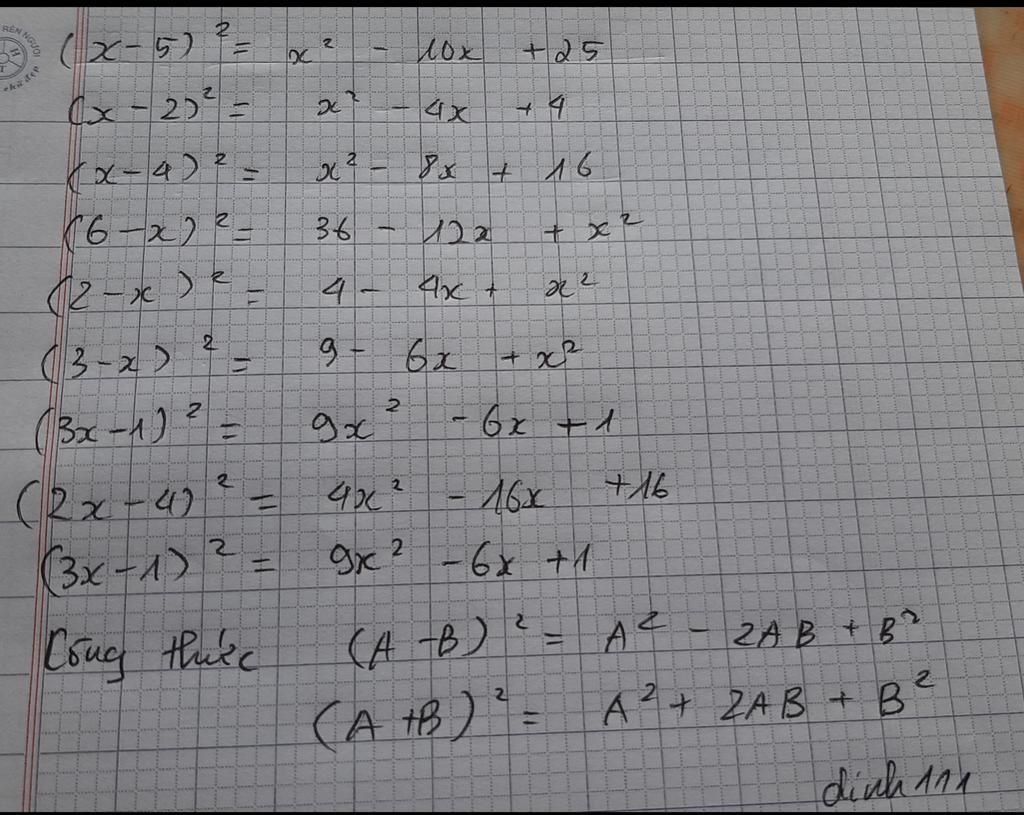 RÈN NGƯỜI
chữ đẹp
(x-5)² = x² - 10x + 25
(x-2)² = x² - 4x + 4
(x-4)² = x² - 8x + 16
(6-x)² = 36 - 12x + x²
(2-x)² = 4 - 4x + x²
(3-x)² = 9 - 6x + x²
(3x-1)² = 9x² - 6x + 1
(2x-4)² = 4x² - 16x + 16
(3x-1)² = 9x² - 6x + 1
Công thức (A-B)² = A² - 2AB + B²
(A+B)² = A² + 2AB + B²
dinh111